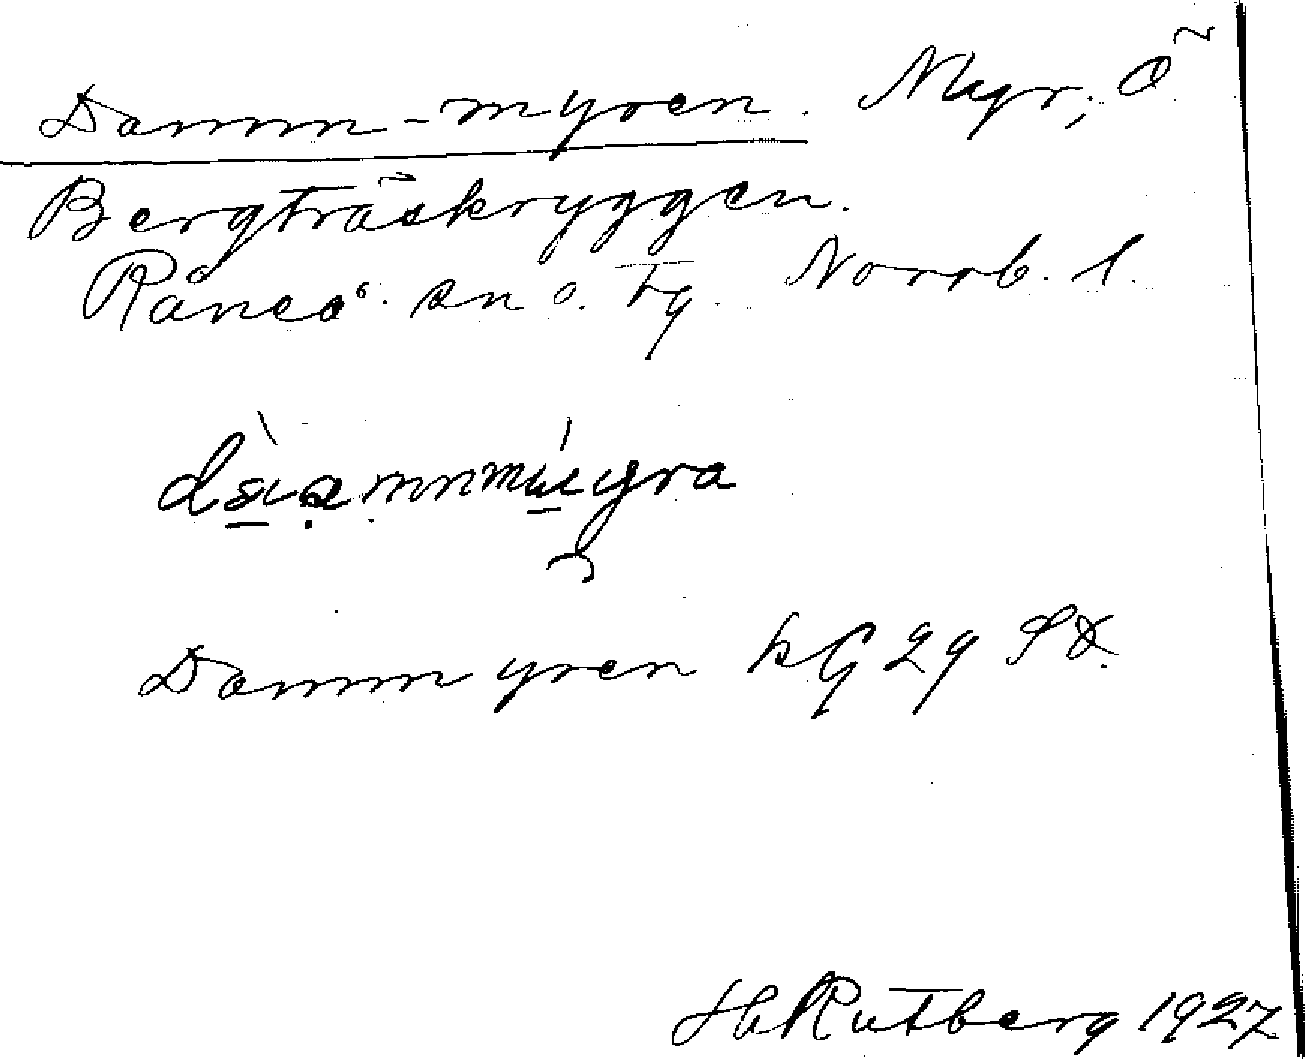 Damm-myren. Myr, Ö
Bergträskryggen.
Råneå sn o. tg. Norrb. l.
Dammyren kG 29 SD.
H Rutberg 1927